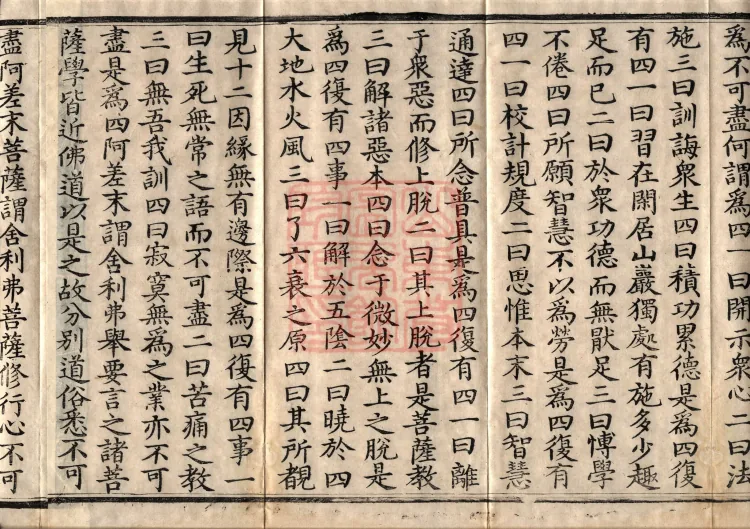 爲不可盡何謂爲四一曰開示衆心二曰法
施三曰訓誨衆生四曰積功累德是爲四復
有四一曰習在閑居山巖獨處有施多少趣
足而已二曰於衆功德而無猒足三曰愽學
不倦四曰所願智慧不以爲勞是爲四復有
四一曰校計規度二曰思惟本末三曰智慧
通達四曰所念普具是爲四復有四一曰離
于衆惡而修上脫二曰其上脫者是菩薩教
三曰解諸惡本四曰念于微妙無上之脫是
爲四復有四事一曰解於五陰二曰曉於四
大地水火風三曰了六衰之原四曰其所覩
見十二因緣無有邊際是爲四復有四事一
曰生死無常之語而不可盡二曰苦痛之教
三曰無吾我訓四曰寂寞無爲之業亦不可
盡是爲四阿差末謂舍利弗舉要言之諸菩
薩學皆近佛道以是之故分別道俗悉不可
盡阿差末菩薩謂舍利弗菩薩修行心不可